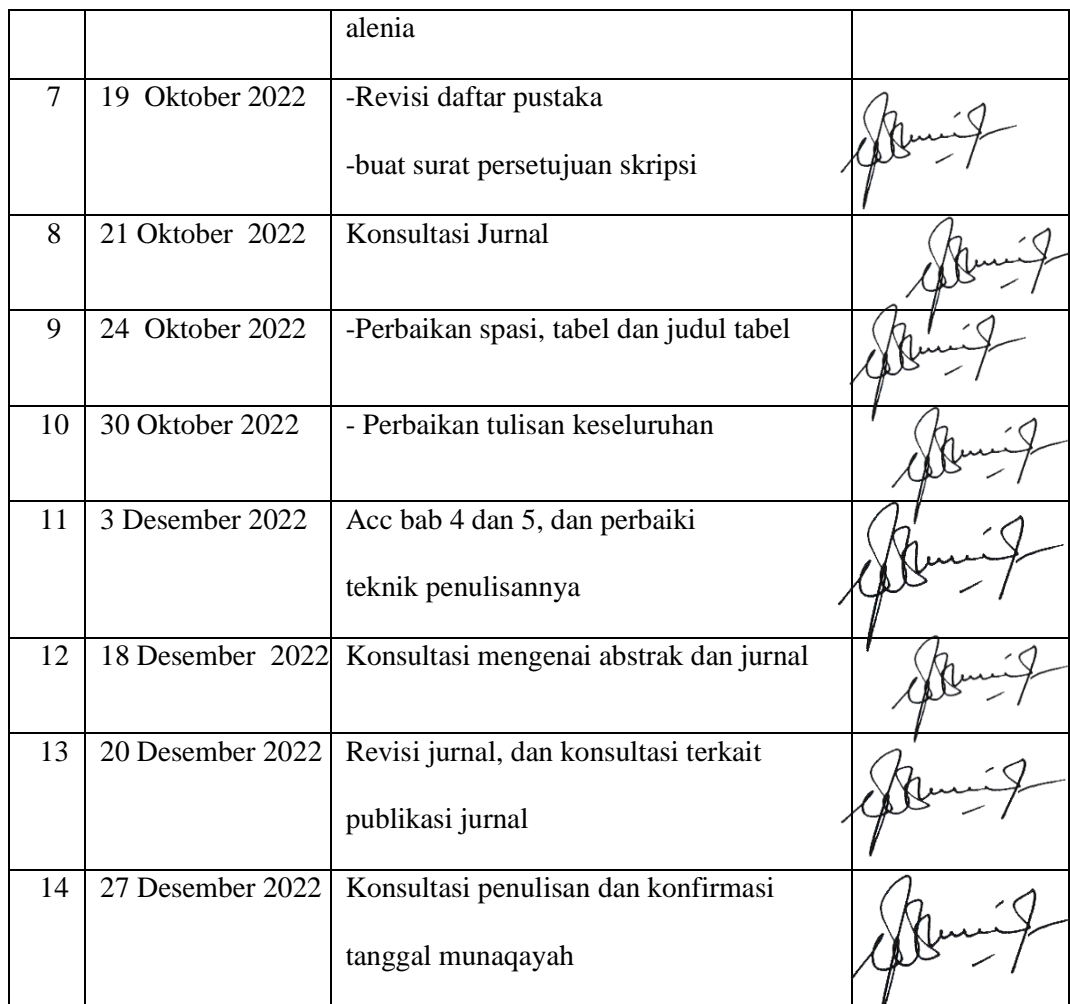 alenia
7 19 Oktober 2022 -Revisi daftar pustaka
-buat surat persetujuan skripsi
8 21 Oktober 2022 Konsultasi Jurnal
9 24 Oktober 2022 -Perbaikan spasi, tabel dan judul tabel
10 30 Oktober 2022 - Perbaikan tulisan keseluruhan
11 3 Desember 2022 Acc bab 4 dan 5, dan perbaiki
teknik penulisannya
12 18 Desember 2022 Konsultasi mengenai abstrak dan jurnal
13 20 Desember 2022 Revisi jurnal, dan konsultasi terkait
publikasi jurnal
14 27 Desember 2022 Konsultasi penulisan dan konfirmasi
tanggal munaqayah